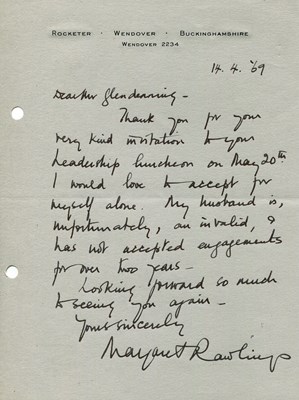 ROCKETER · WENDOVER · BUCKINGHAMSHIRE
WENDOVER 2234
14. 4. 69
Dear Mr Glendenning -
Thank you for your
very kind invitation to your
Leadership luncheon on May 20th
I would love to accept for
myself alone. My husband is,
unfortunately, an invalid, &
has not accepted engagements
for over two years -
Looking forward so much
to seeing you again -
Yours sincerely
Margaret Rawlings